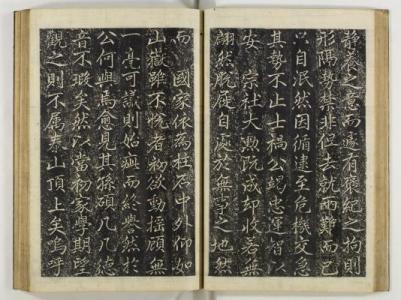 静養之意而遽有褒紀之拘則
形隔勢禁非徒去就兩難而已
以自泯然因循逮至危機交急
其勢不止士禍公竭忠運智以
安宗社大勲既成却收若無
翩然脱屣自處於無事之地然
而國家依為柱石中外仰如
山嶽雖不悦者物欲動揺顧無
一毫可議則始疵而終譽然於
公何與焉愈見其孫碩几几德
音不瑕矣然以當初家學期望
觀之則不属泰山頂上矣嗚呼